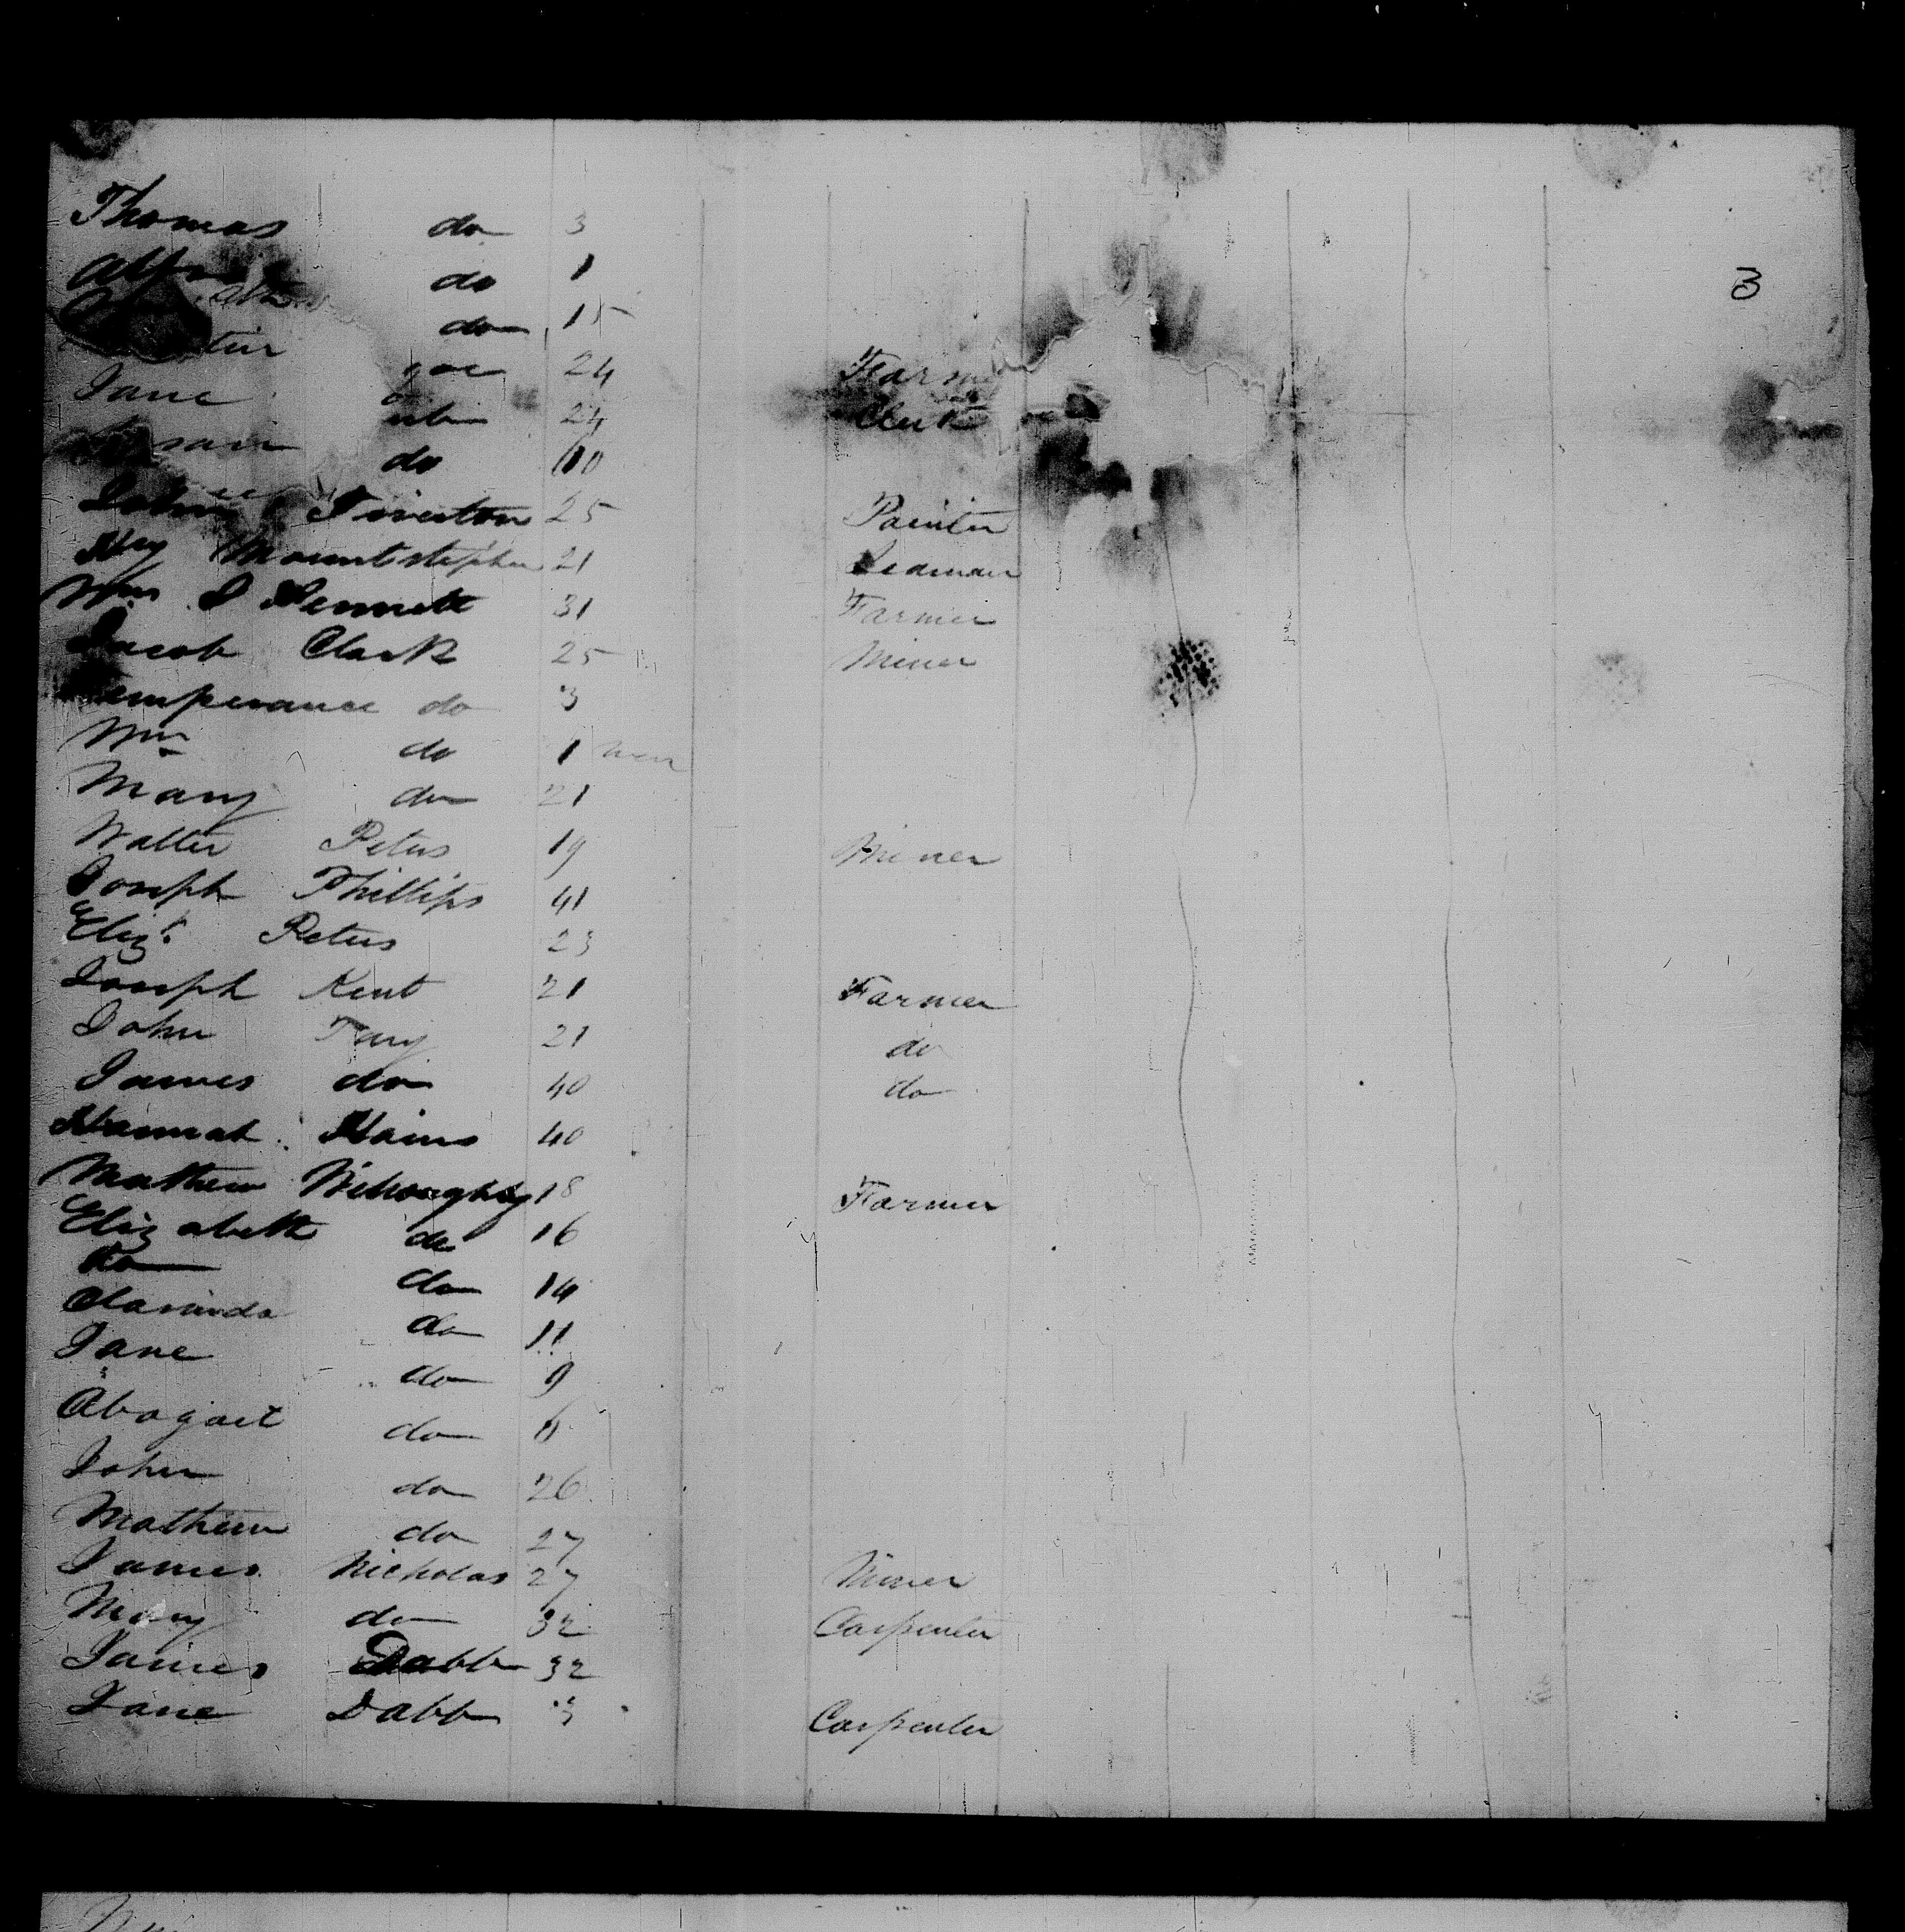 Thomas do 3
3
do 1
do 15
24 Farm
Jane 24 Clerk
do
John Tiverton 25 Painter
Hy Mountstephen 21 Seaman
Wm J Bennett 31 Farmer
Jacob Clark 25 Miner
Temperance do 3
Wm do 1
Mary do 21
Walter Peters 19 Miner
Joseph Phillips 41
Eliz. Peters 23
Joseph Kent 21 Farmer
John 21 do
James do 40 do
Hannah Hains 40
Mathew Wiloughby 18 Farmer
Elizabeth do 16
do 14
Clarinda do 11
Jane do 9
Abagail do 6
John do 26
Mathew do 27
James Nicholas 27 Miner
Mary do 32 Carpenter
James Dabb 32
Jane Dabb 3 Carpenter